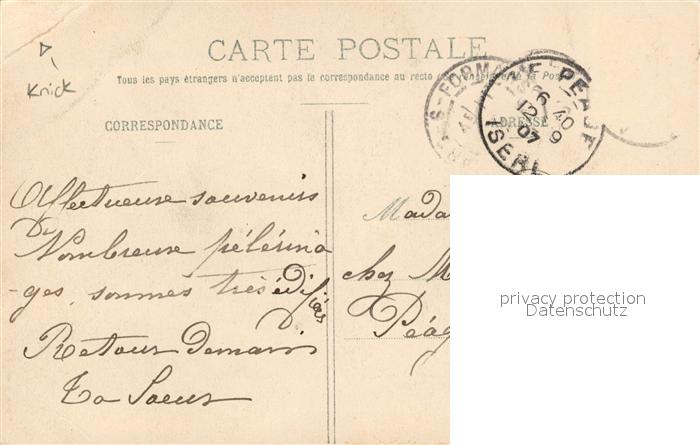 Knick
CARTE POSTALE
Tous les pays étrangers n'acceptent pas la correspondance au recto
la Pos
CORRESPONDANCE
ADRESSE
Affectueux souvenirs
De
Nombreux pélérina
-ges, sommes très édifiés
Retour Demain
Ta Soeur
Mada
chez M
Péag
PEAGE
ISERE
6 40
12 9
07
privacy protection
Datenschutz